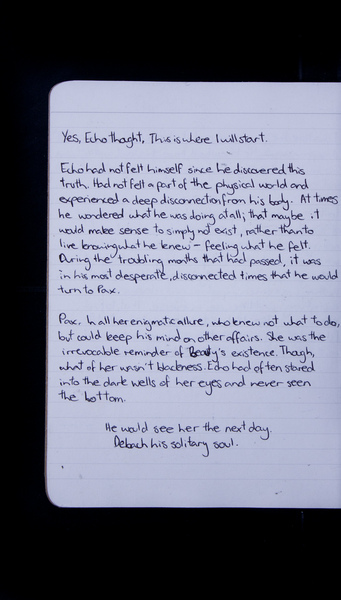 Yes, Echo thoght, This is where I will start.
Echo had not felt himself since he discovered this
truth. Had not felt a part of the physical world and
experienced a deep disconnection from his body. At times
he wondered what he was doing at all; that maybe it
would make sense to simply not exist, rather than to
live knowing what he knew – feeling what he felt.
During the troubling months that had passed, it was
in his most desperate, disconnected times that he would
turn to Pax.
Pax. In all her enigmatic allure, who knew not what to do,
but could keep his mind on other affairs. She was the
irrevocable reminder of Beauty's existence. Though,
what of her wasn't blackness. Echo had often stared
into the dark wells of her eyes and never seen
the bottom.
He would see her the next day.
Debach his solitary soul.